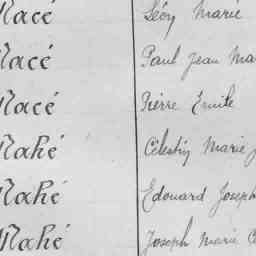 Macé Léon Marie
Macé Paul Jean Ma
Macé Pierre Emile
Mahé Célestin Marie J
Mahé Edouard Joseph
Mahé Joseph Marie C